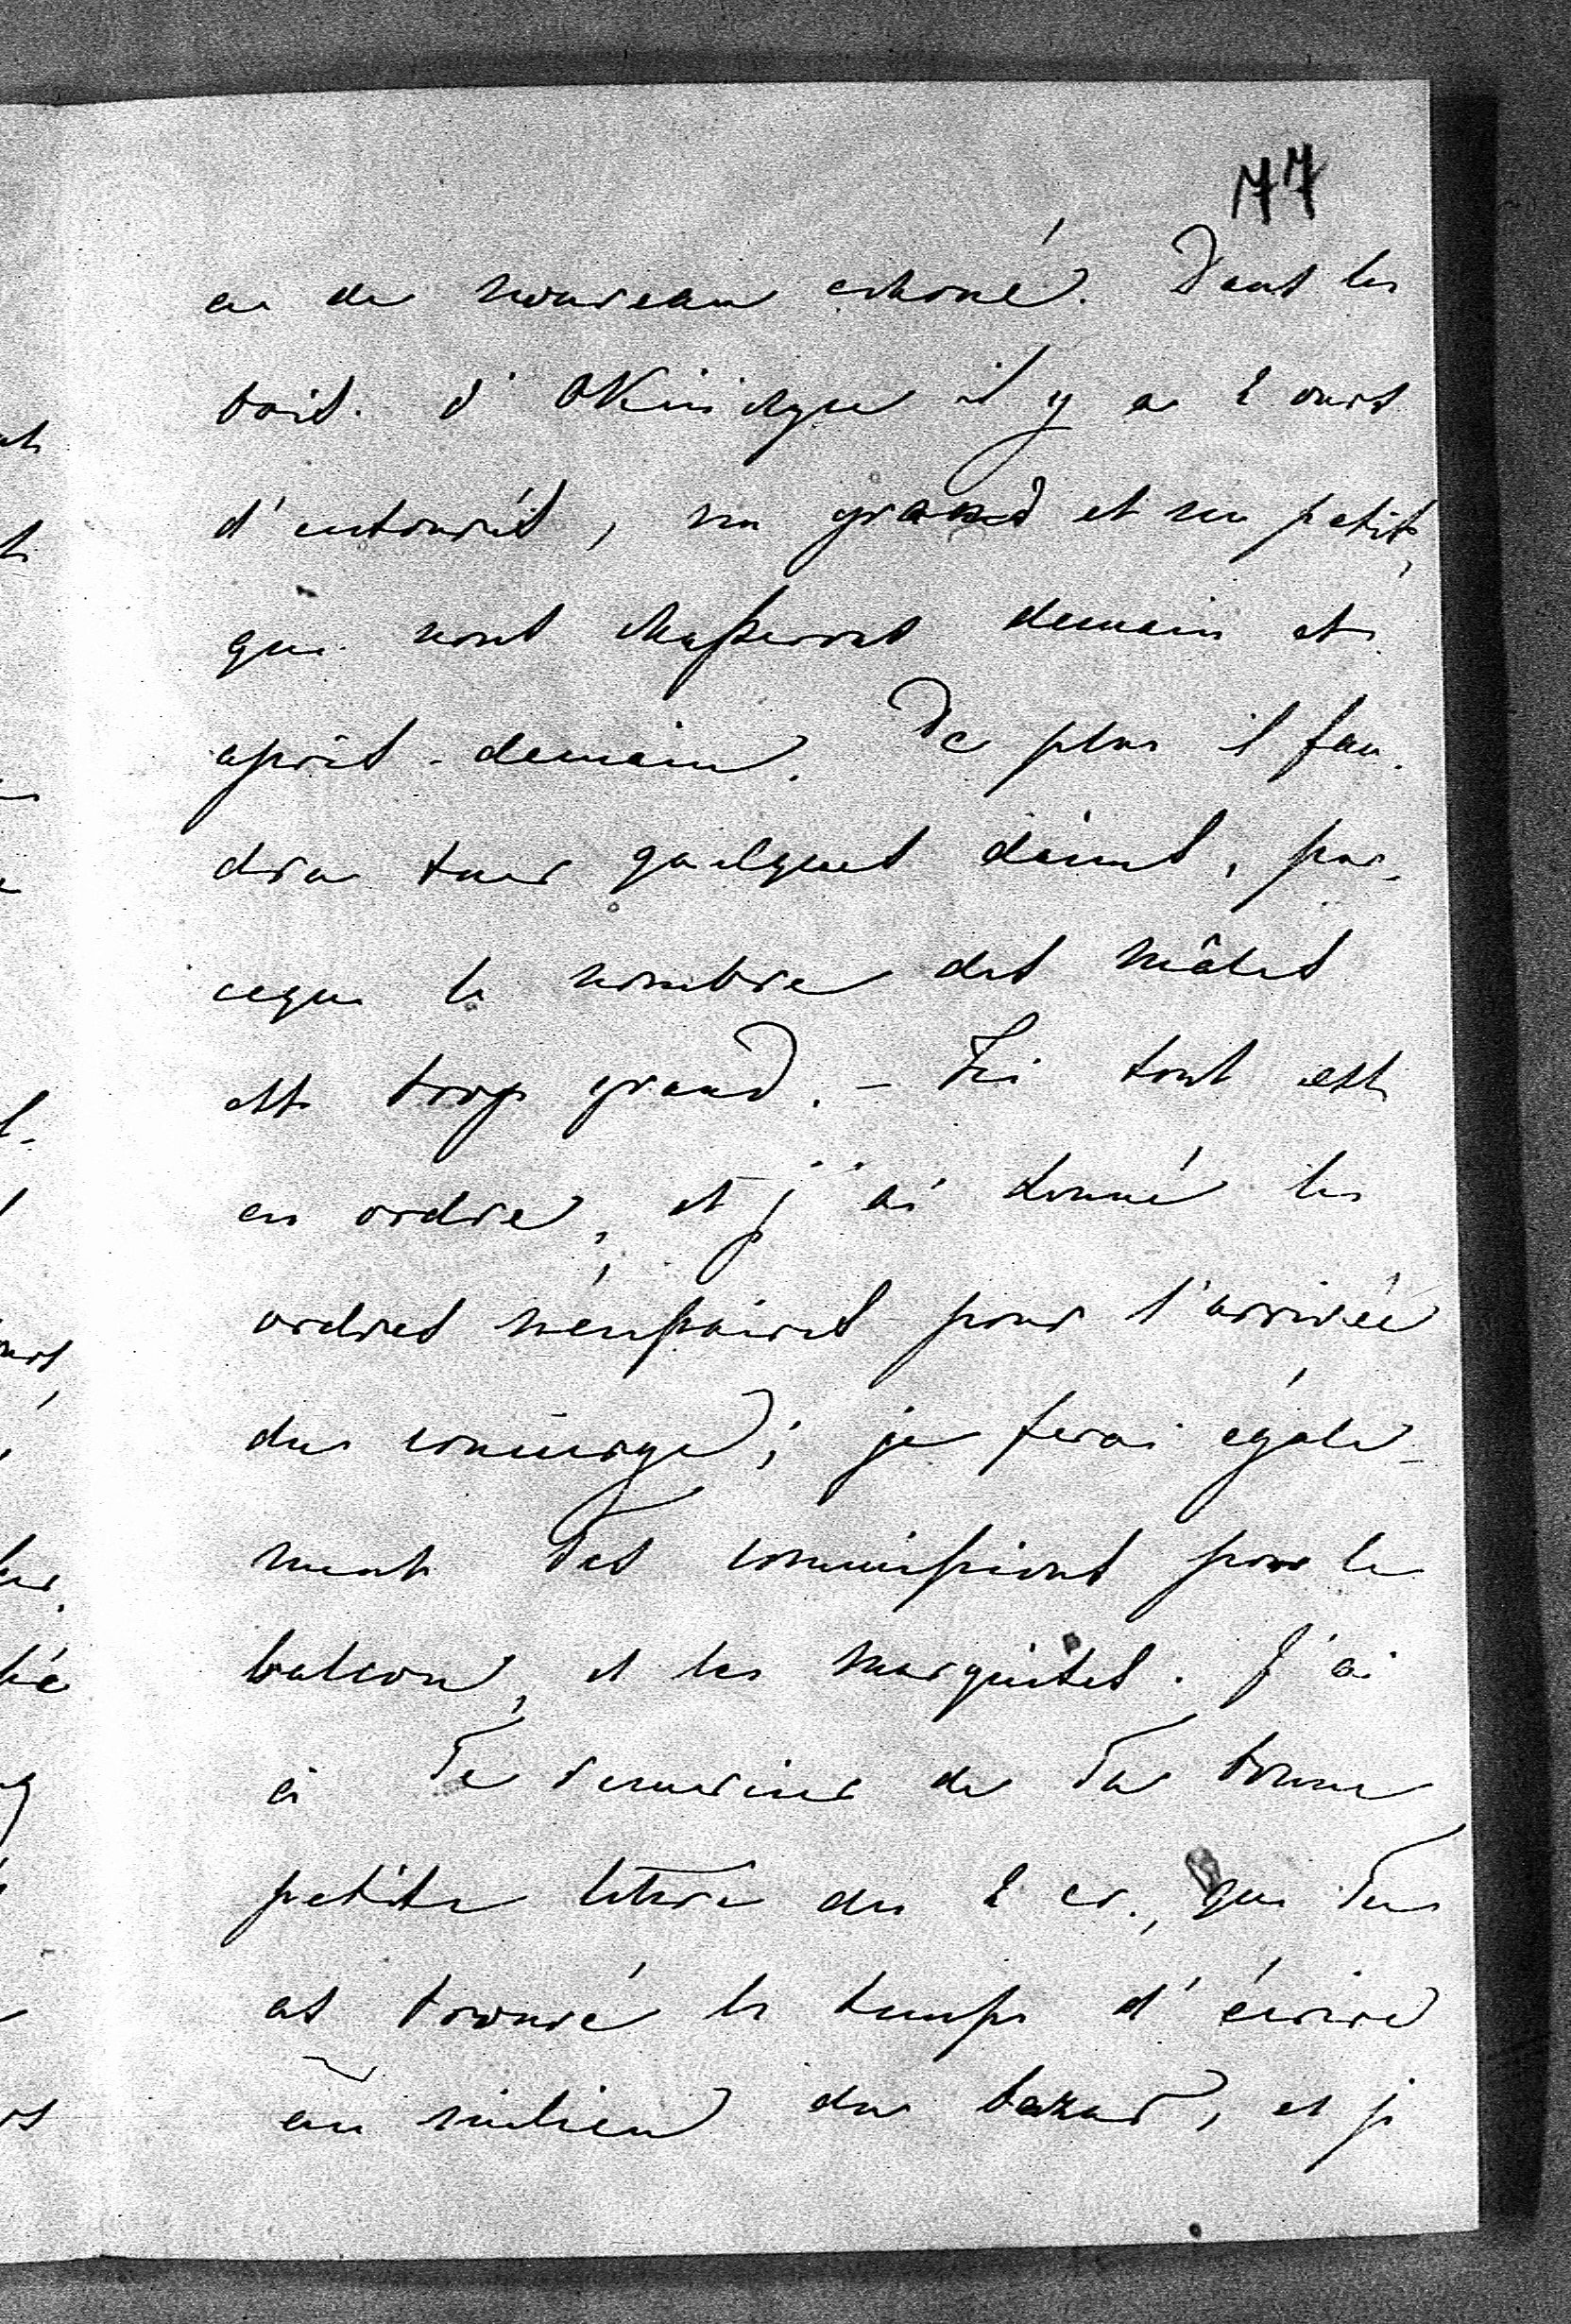 77
a de nouveau echoué. Dans les
bois d' il y a 2 ours
d'entourés, un grand et un petit,
que nous chasserons demain et
après-demain. De plus il fau-
dra tuer quelques daims, par-
ceque le nombre des mâles
est trop grand. – Ici tout est
en ordre, et j'ai donné les
ordres nécessaires pour l'arrivée
du concierge; je ferai égale-
ment Tes commissions pour le
balcon, et les marquises. J'ai
à Te remercier de Ta bonne
petite lettre du 2 cr., que Tu
as trouvé le temps d'écrire
au milieu du bazar, et je